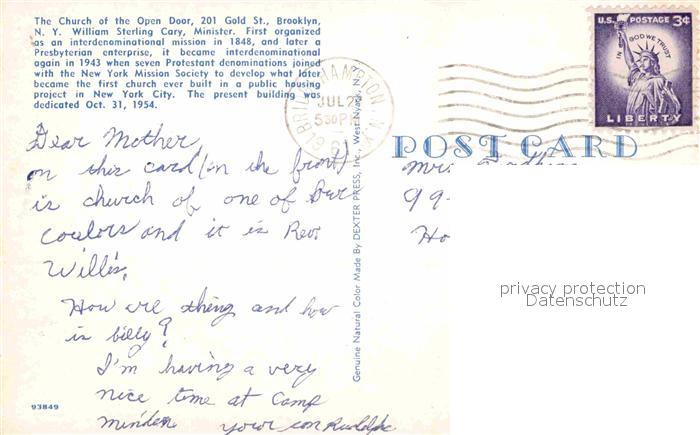 The Church of the Open Door, 201 Gold St., Brooklyn,
N. Y. William Sterling Cary, Minister. First organized
as an interdenominational mission in 1848, and later a
Presbyterian enterprise, it became interdenominational
again in 1943 when seven Protestant denominations joined
with the New York Mission Society to develop what later
became the first church ever built in a public housing
project in New York City. The present building was
dedicated Oct. 31, 1954.
Dear Mother
on this card (on the front)
is church of one of Our
coulors and it is Rev.
Willis.
How are thing and how
is billy?
I'm having a very
nice time at Camp
your son Rudolph
93849
Genuine Natural Color Made By DEXTER PRESS, Inc., West Nyack, N.
JUL 2
5 30 PM
U.S. POSTAGE 3¢
IN GOD WE TRUST
LIBERTY
POST CARD
Mrs.
99
Ho
privacy protection
Datenschutz